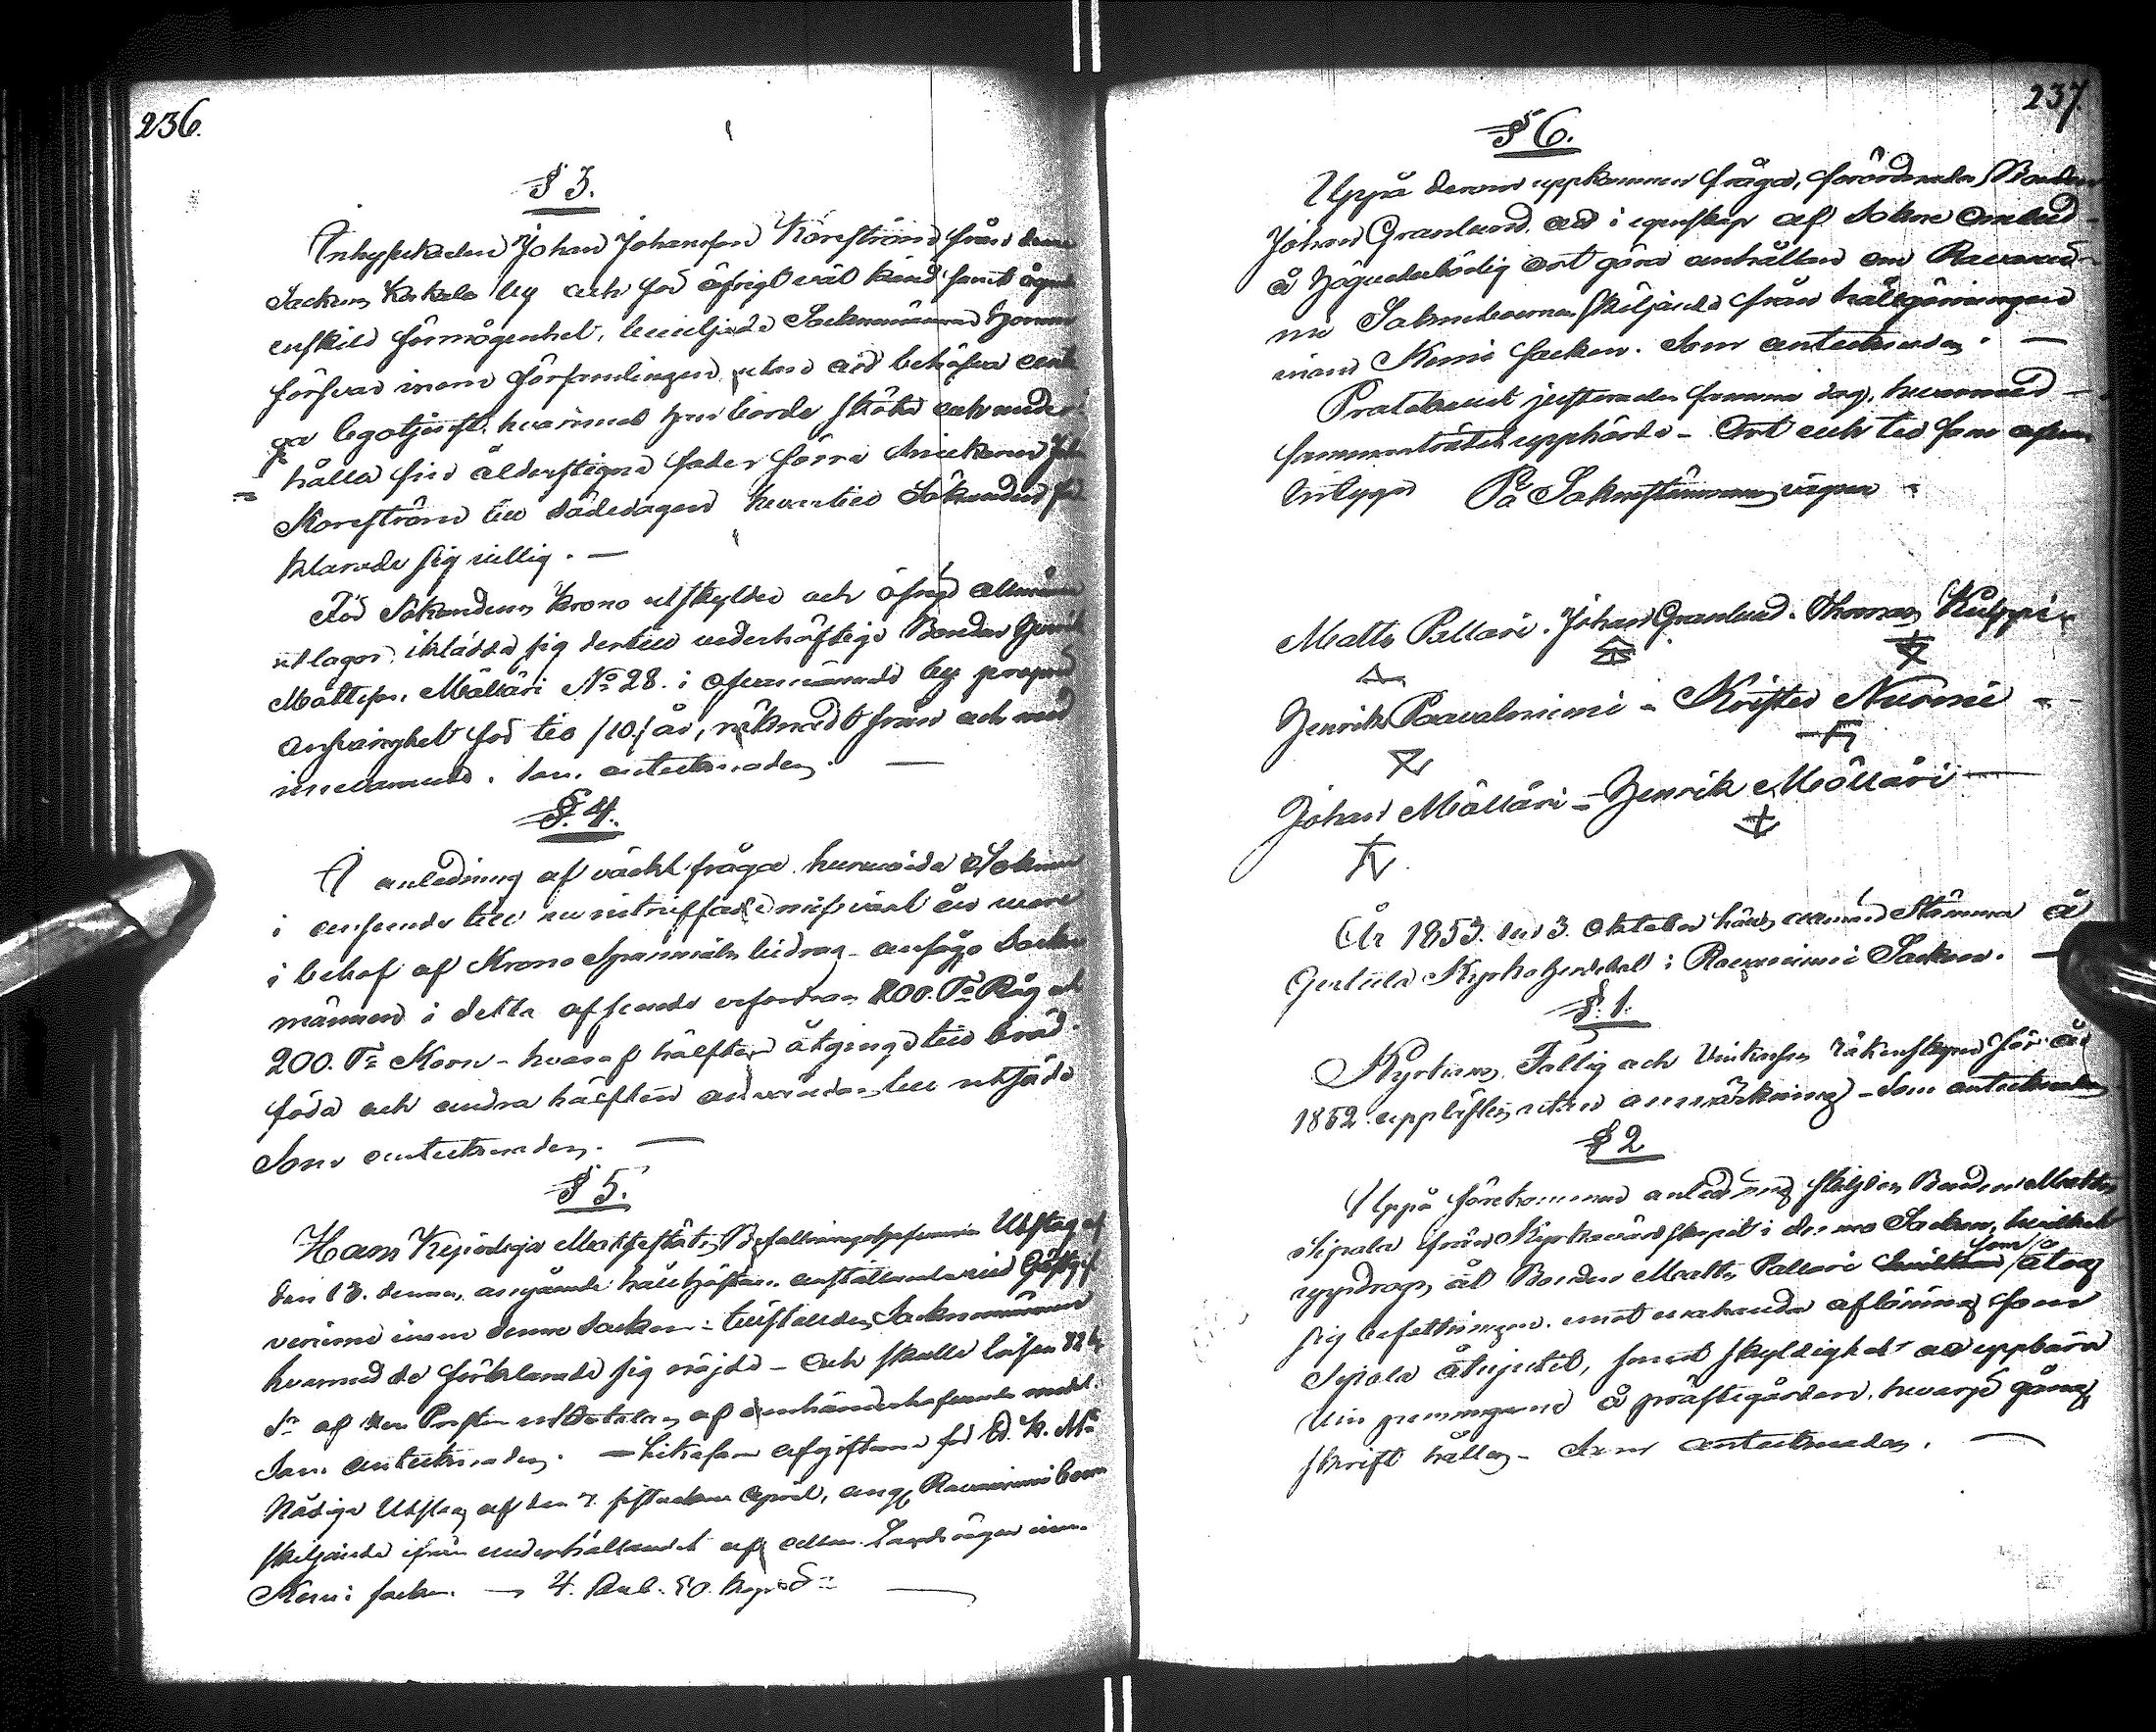 236.
§ 3.
Inhysekarlen Johan Johansson Korström från denna
Sockens Korkalo by och för öfrigt väl känd samt ägande
enskild förmögenhet, beviljade Sockenmännen honom
försvar inom församlingen utan att behöfva
ga legotjenst, hvarimot han borde sköta och under-
hålla sin ålderstigne fader förre
Korström till dödedagen hvartill Sökanden för
klarade sig villig. —
För Sökandens krono utskylder och öfrige allmänna
utlagor, iklädde sig dertill vederhäftige Bonden Henrik
Mattsson Mälläri No 28. i ofvannämnde by
ansvarighet för tio /10/ år, räknadt från och med
innevarande. Som antecknades. —
§. 4.
I anledning af väckt fråga huruvida Socknen
i anseende till nu inträffade missväxt är
i behof af Krono Spannmåls bidrag - ansågo Socken
männen i detta afseende erfordras 200. Tr Råg och
200. Tr Korn - hvaraf hälften åtginge till bröd
föda och andra hälften användas till utsäde
Som antecknades. —
§ 5.
Hans Kejserliga Majestäts Befallningshafvandes Utslag af
den 13. dennes, angående hållhästars anställande vid Gästgif
verierne inom denna Socken tillställdes Sockenmännen
hvarmed de förklarade sig nöjde - och skulle lösen 88 k.
Sr af den Posten utbetalas af
Som antecknades. — Likasom afgifterne för Ed. K. Mts
Nådiga Utslag af den 7. sistledne April, ang. Rovaniemi boers
skiljande ifrån underhållandet af allm. Landsvägen inom
Kemi Socken. — 4. Rub. 50. kop. Sr —
237.
§ 6.
Uppå derom uppkommen fråga, förordnades Bonden
Johan Granlund att i egenskap af Sockne Ombud
å högvederbörlig ort göra anhållan om Rovanie-
mi Sockneboernas skiljande från hållgörningen
inom Kemi Socken. Som antecknades. —
Protokollet justerades samma dag, hvarmed
sammanträdet upphörde - Ort och tid som ofvan
intygar På Socknestämmans vägnar
Matts Pallari. Johan Granlund. Thomas Kulppi
Henrik Paavalniemi - Krister Nurmi
Johan Mälläri - Henrik Mälläri —
År 1853. den 3. Oktober hölls allmän Stämma å
Gertula Kyrkoherdebol i Rovaniemi Socken. —
§. 1.
Kyrkans, Fattig och räkenskaper för år
1852. upplästes utan anmärkning - Som antecknades
§ 2
Uppå förekommen anledning skiljdes Bonden Matts
Sipola från Kyrkovärdskapet i denna Socken, hvilket
uppdrogs åt Bonden Matts Pallari som åtog
sig befattningen emot enahanda aflöning som
Sipola åtnjutit, samt skyldighet att uppbära
Vin penningarne å prästegården, hvarje gång
skrift hålles - Som antecknades. —